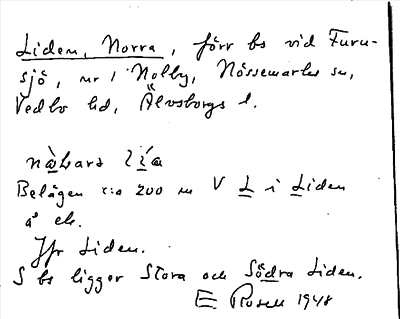 Liden, Norra, förr bs vid Furu-
sjö, nr 1 Nolby, Nössemarks sn,
Vedbo hd, Älvsborgs l.
lía
Belägen c:a 200 m V L i Liden
å ek.
Jfr Liden.
S bs ligger Stora och Södra Liden.
E. Rosell 1948